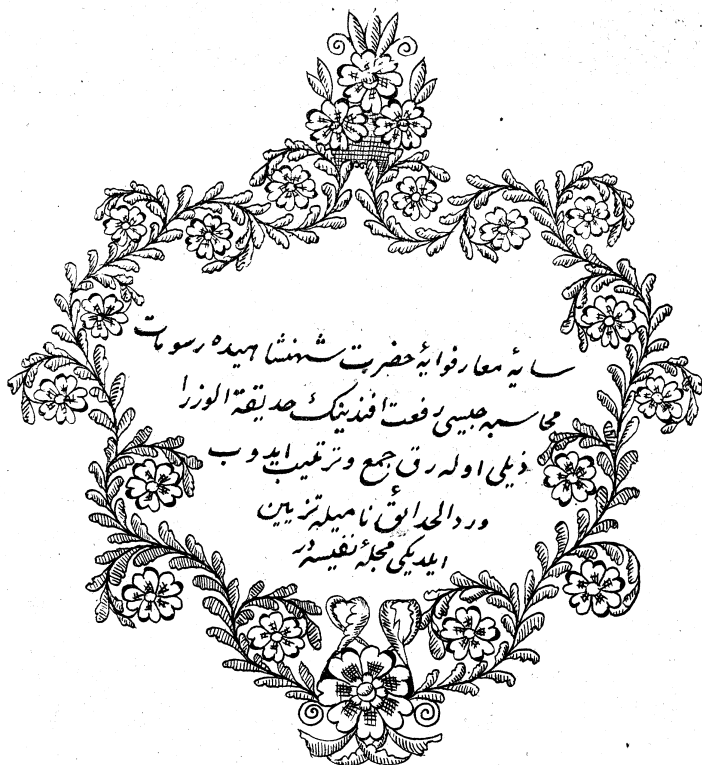 سایهٔ معارفوایهٔ حضرت شهنشاهیده رسومات
محاسبه جیسی رفعت افندینک حدیقة الوزرا
ذیلی اوله رق جمع وترغیب ایدوب
ورد الحدائق نامیله تزیین
ایلدیکی مجلهٔ نفیسه در